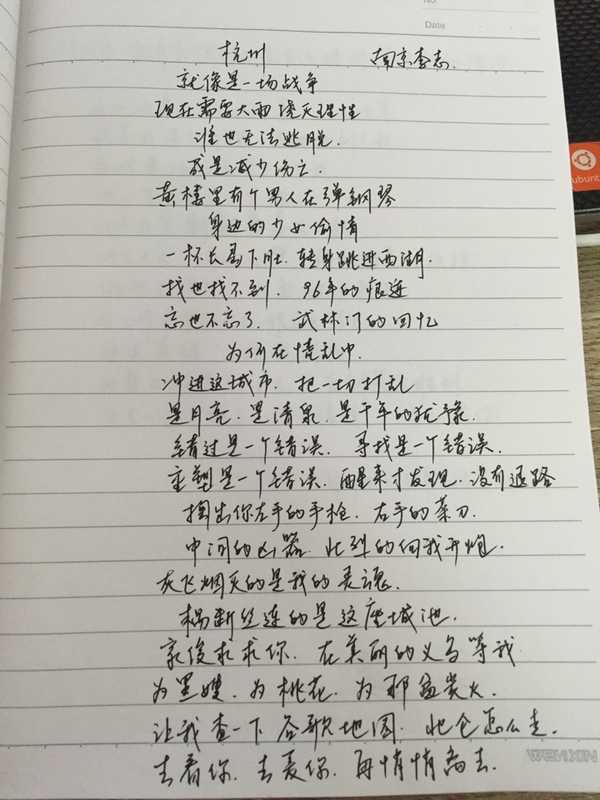 No.
Date
杭州 南京李志.
就像是一场战争
现在需要大雨浇灭理性
谁也无法逃脱.
或是减少伤亡.
黄楼里有个男人在弹钢琴
身边的少女偷情
一杯长岛下肚. 转身跳进西湖.
找也找不到. 96年的痕迹
忘也不忘了. 武林门的回忆
为何在慌乱中.
冲进这城市. 把一切打乱
是月亮. 是清泉. 是千年的犹豫.
错过是一个错误. 寻找是一个错误.
重塑是一个错误. 醒来才发现. 没有退路
掏出你左手的手枪. 右手的菜刀.
中间的凶器. 壮烈的向我开炮.
灰飞烟灭的是我的灵魂.
藕断丝连的是这座城池.
郭俊求求你. 在美丽的义乌等我
为黑嫂. 为桃花. 为那盆炭火.
让我查一下 谷歌地图. 北仑怎么走.
去看你. 去爱你. 再悄悄离去.
ubunt